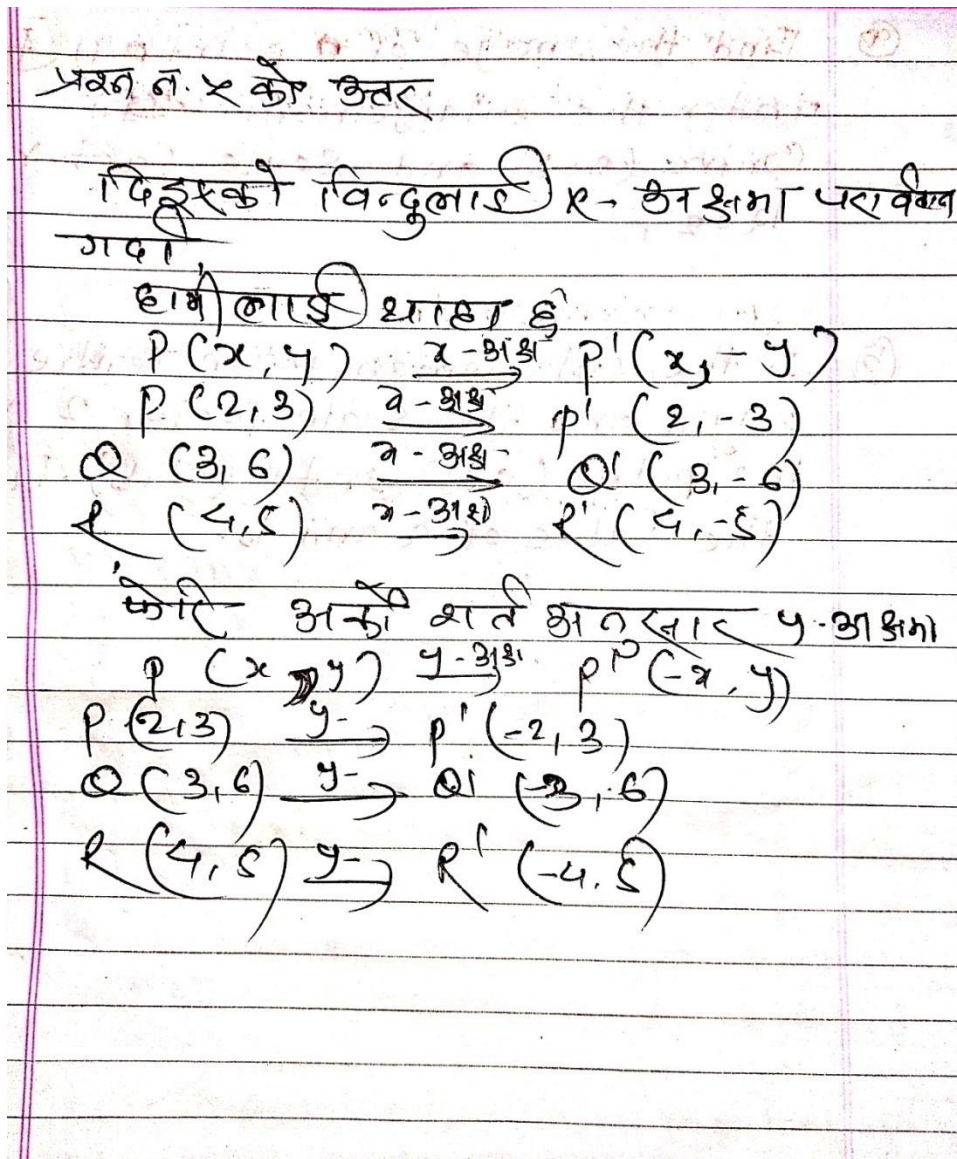 प्रश्न नं. ५ को उत्तर
दिइएको विन्दुलाई x- अक्षमा परार्वतन
गर्दा,
हामीलाई थाहा छ
P (x, y) x-अक्ष→ P' (x, -y)
P (2, 3) x-अक्ष→ P' (2, -3)
Q (3, 6) x-अक्ष→ Q' (3, -6)
R (4, 5) x-अक्ष→ R' (4, -5)
फेरि अर्को शर्त अनुसार y-अक्षमा
P (x, y) y-अक्ष→ P' (-x, y)
P (2, 3) y-→ P' (-2, 3)
Q (3, 6) y-→ Q' (-3, 6)
R (4, 5) y-→ R' (-4, 5)